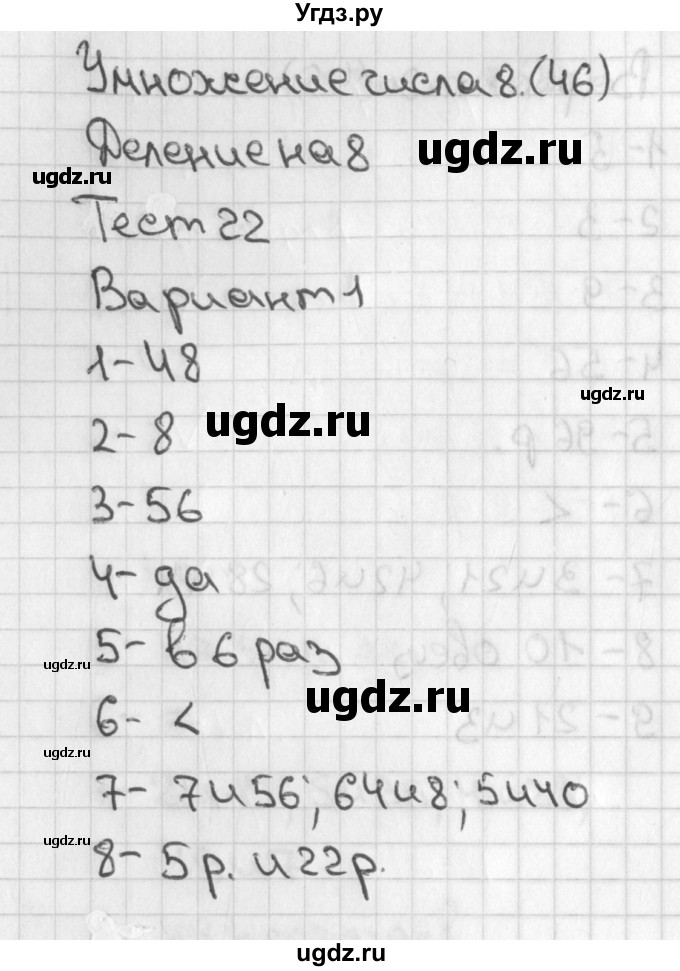 Угдз.ру
Умножение числа 8. (46)
Деление на 8
ugdz.ru
ugdz.ru
Тест 22
Вариант 1
1- 48
ugdz.ru
2- 8
ugdz.ru
3- 56
4- да
5- в 6 раз
ugdz.ru
ugdz.ru
6- <
ugdz.ru
7- 7 и 56; 64 и 8; 5 и 40
8- 5 р. и 22 р.
ugdz.ru
ugdz.ru